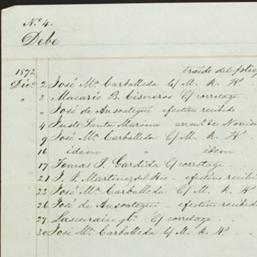 No. 4.
Debe
traido del folio
1872
Dicre. 2 José Ma. Carballeda c/ M. R. Va.
" 2 Macario B. Cisneros c/ corretage
" " José de Ansoategui efectivo recibido
" 4 Santa Marina
9 José Ma. Carballeda c/ M. R. Va.
16 idem " idem
17 Tomas J. Gardida c/ corretage
21 J. S. Martinez del Rio efectivo recibi
22 José Ma. Carballeda c/ M. R. Va.
26 José de Ansoategui efectivo recibido
27 c/ corretage
30 José Ma. Carballeda c/ M. R. Va.